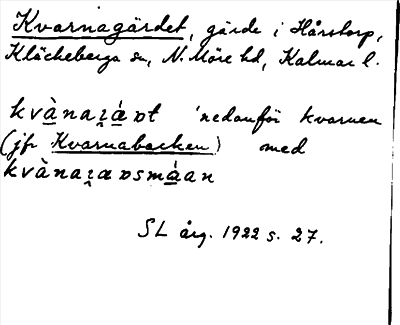 Kvarnagärdet, gärde i Hårstorp,
Kläckeberga sn, N. Möre hd, Kalmar l.
kvànaʐæ̀ɒt 'nedanför kvarnen
(jfr Kvarnabacken) med
kvànaʐæɒsmáan
SL årg. 1922 s. 27.